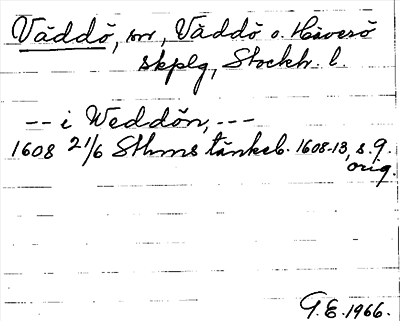 Väddö, sn, Väddö o. Häverö
skplg, Stockh. l.
-- i Weddön, ---
1608 21/6 Sthms tänkeb. 1608-13, s. 9.
orig.
G.E. 1966.